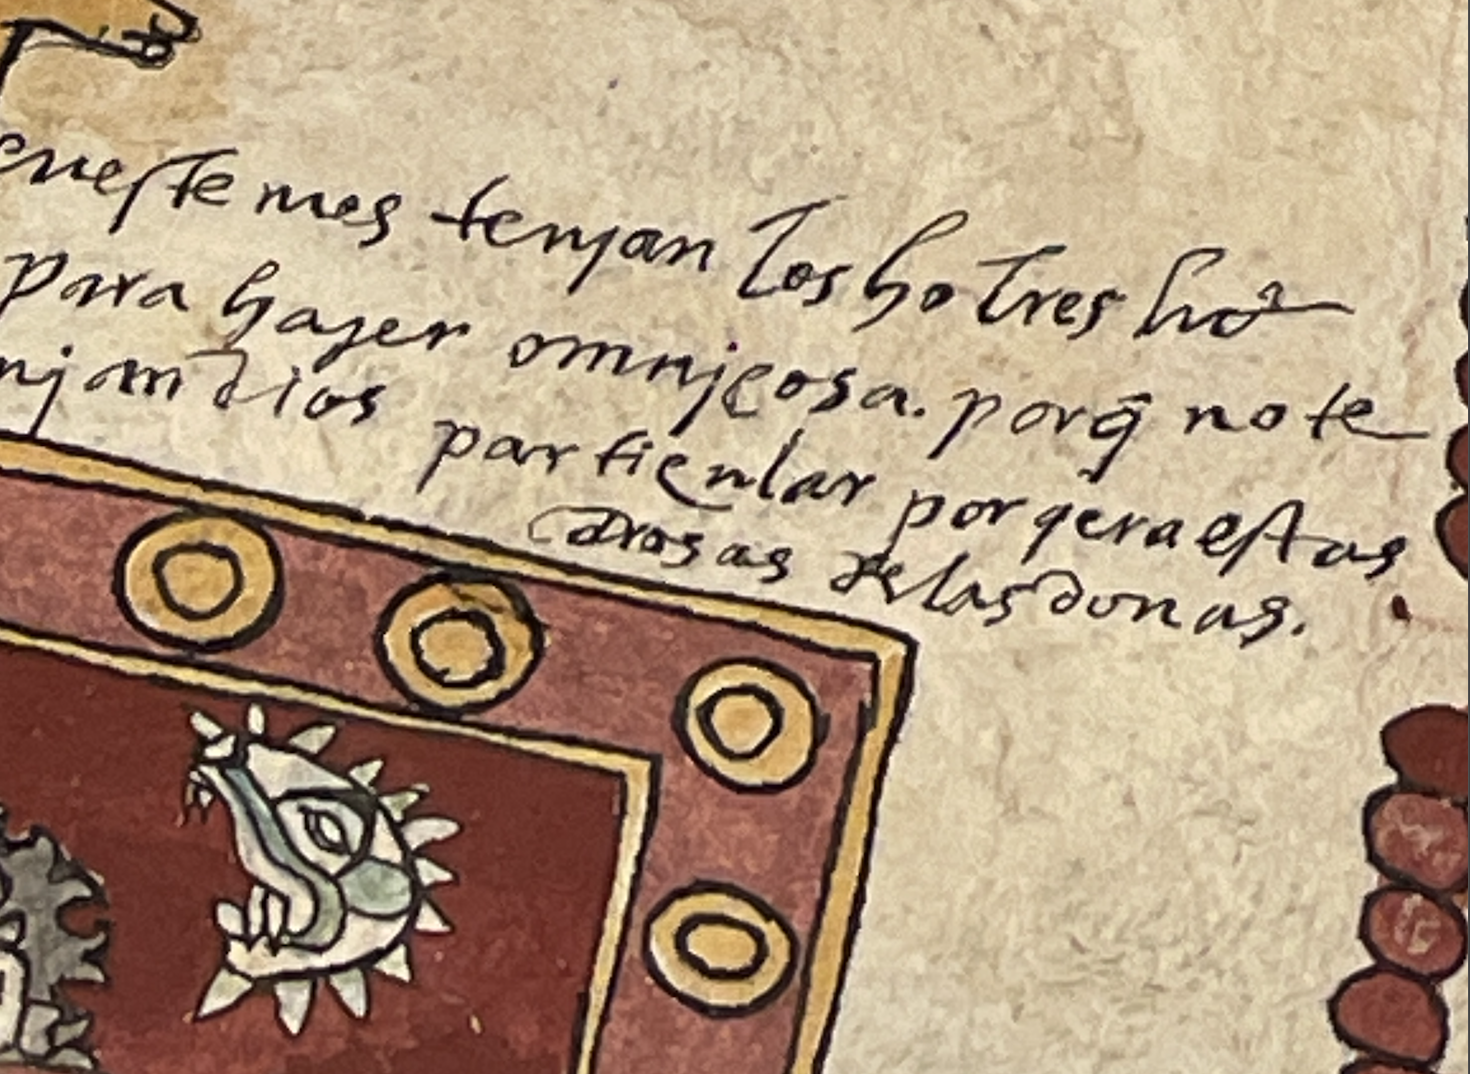 eneste mes tenjan los ho tres ho
para hazer omnjcosa. porq̄ no te
njan dios particular porqera estas
drosas delas donas.